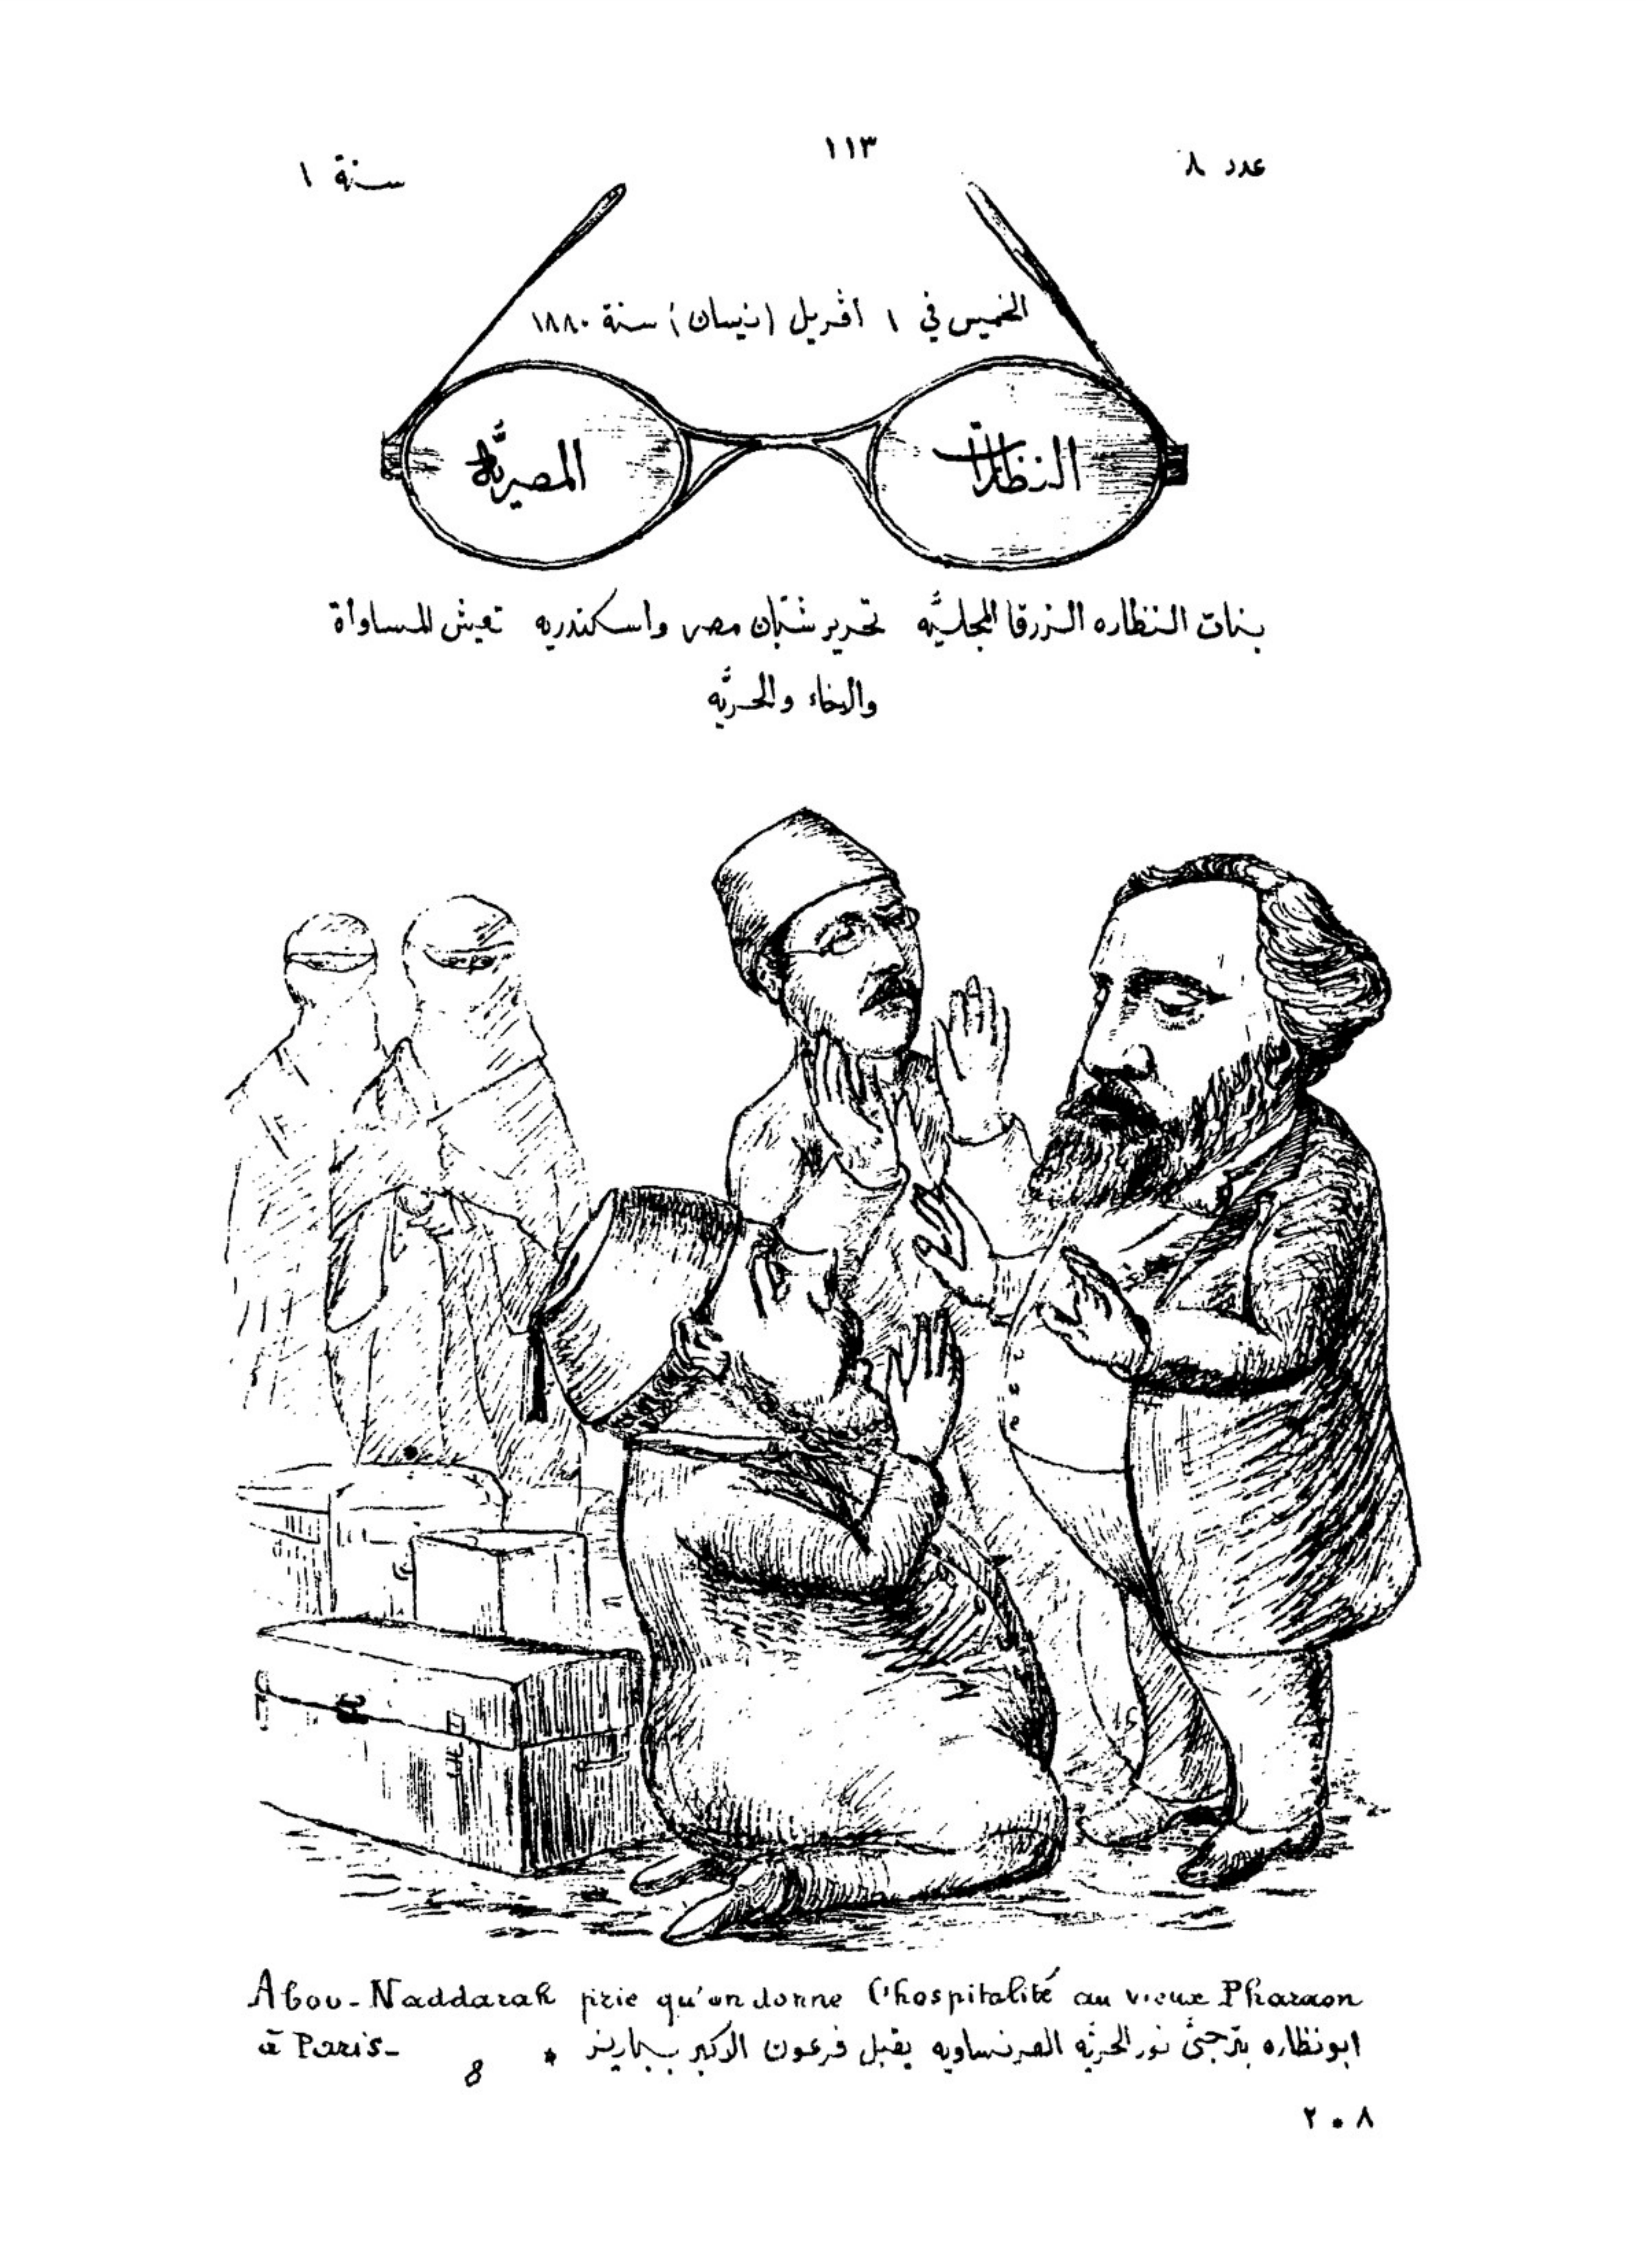 ١١٣
عدد ٨
سنة ١
الخميس في ١ أڤريل (نيسان) سنة ١٨٨٠
النظارات
المصريَّه
بنات النظاره الزرقا المجليَّه تحرير شبَّان مصر واسكندريه تعيش المساواة
والاخاء والحريَّه
Abou-Naddarah prie qu'on donne l'hospitalité au vieux Pharaon
à Paris-
ابونظاره يترجَّى نور الحريَّه الفرنساويه يقبل فرعون الاكبر بباريز *
8
٢٠٨